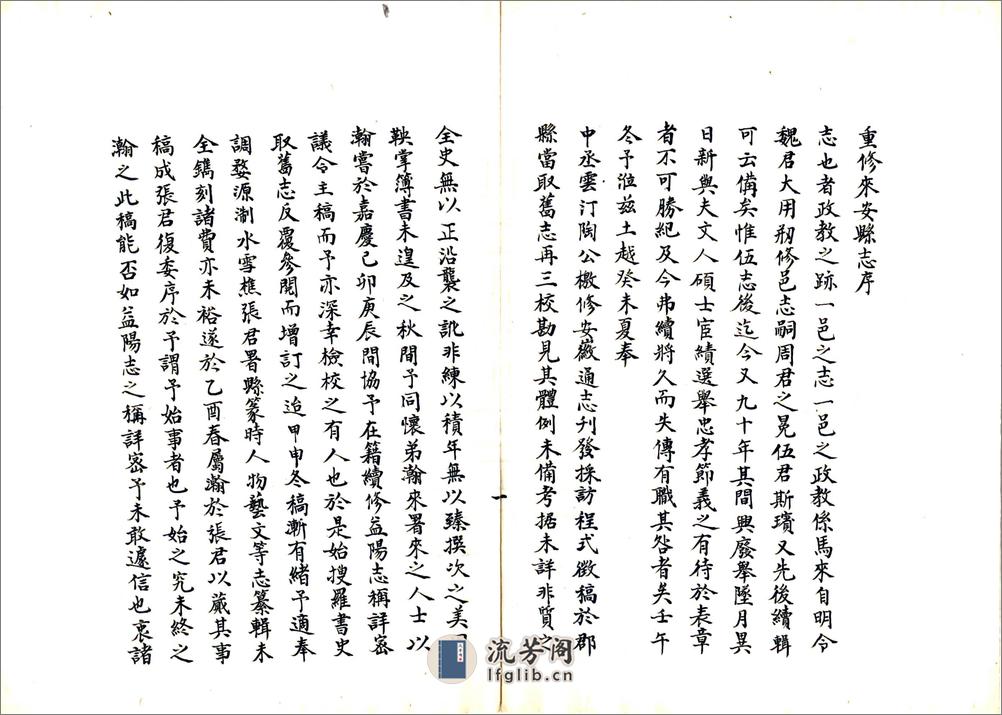 重修來安縣志序
志也者政教之跡一邑之志一邑之政教係馬來自明令
魏君大用刱修邑志嗣周君之晃伍君斯璸又先後續輯
可云備矣惟伍志後迄今又九十年其間興廢舉墜月異
日新與夫文人碩士宦績選舉忠孝節義之有待於表章
者不可勝紀及今弗續將久而失傳有職其咎者矣壬午
冬予涖茲土越癸未夏奉
中丞雲汀陶公檄修安徽通志刊發採訪程式徵稿於郡
縣當取舊志再三校勘見其體例未備考据未詳非質之
全史無以正沿襲之訛非練以積年無以臻撰次之美
鞅掌簿書未遑及之秋間予同懷弟瀚來署來之人士以
瀚嘗於嘉慶己卯庚辰間協予在籍續修益陽志稱詳密
議令主稿而予亦深幸檢校之有人也於是始搜羅書史
取舊志反覆參閱而增訂之迨甲申冬稿漸有緒予適奉
調婺源淛水雪樵張君署縣篆時人物藝文等志纂輯未
全鐫刻諸費亦未裕遂於乙酉春屬瀚於張君以蕆其事
稿成張君復委序於予謂予始事者也予始之究未終之
瀚之此稿能否如益陽志之稱詳密予未敢遽信也裒諸
一
流芳阁
lfglib.cn